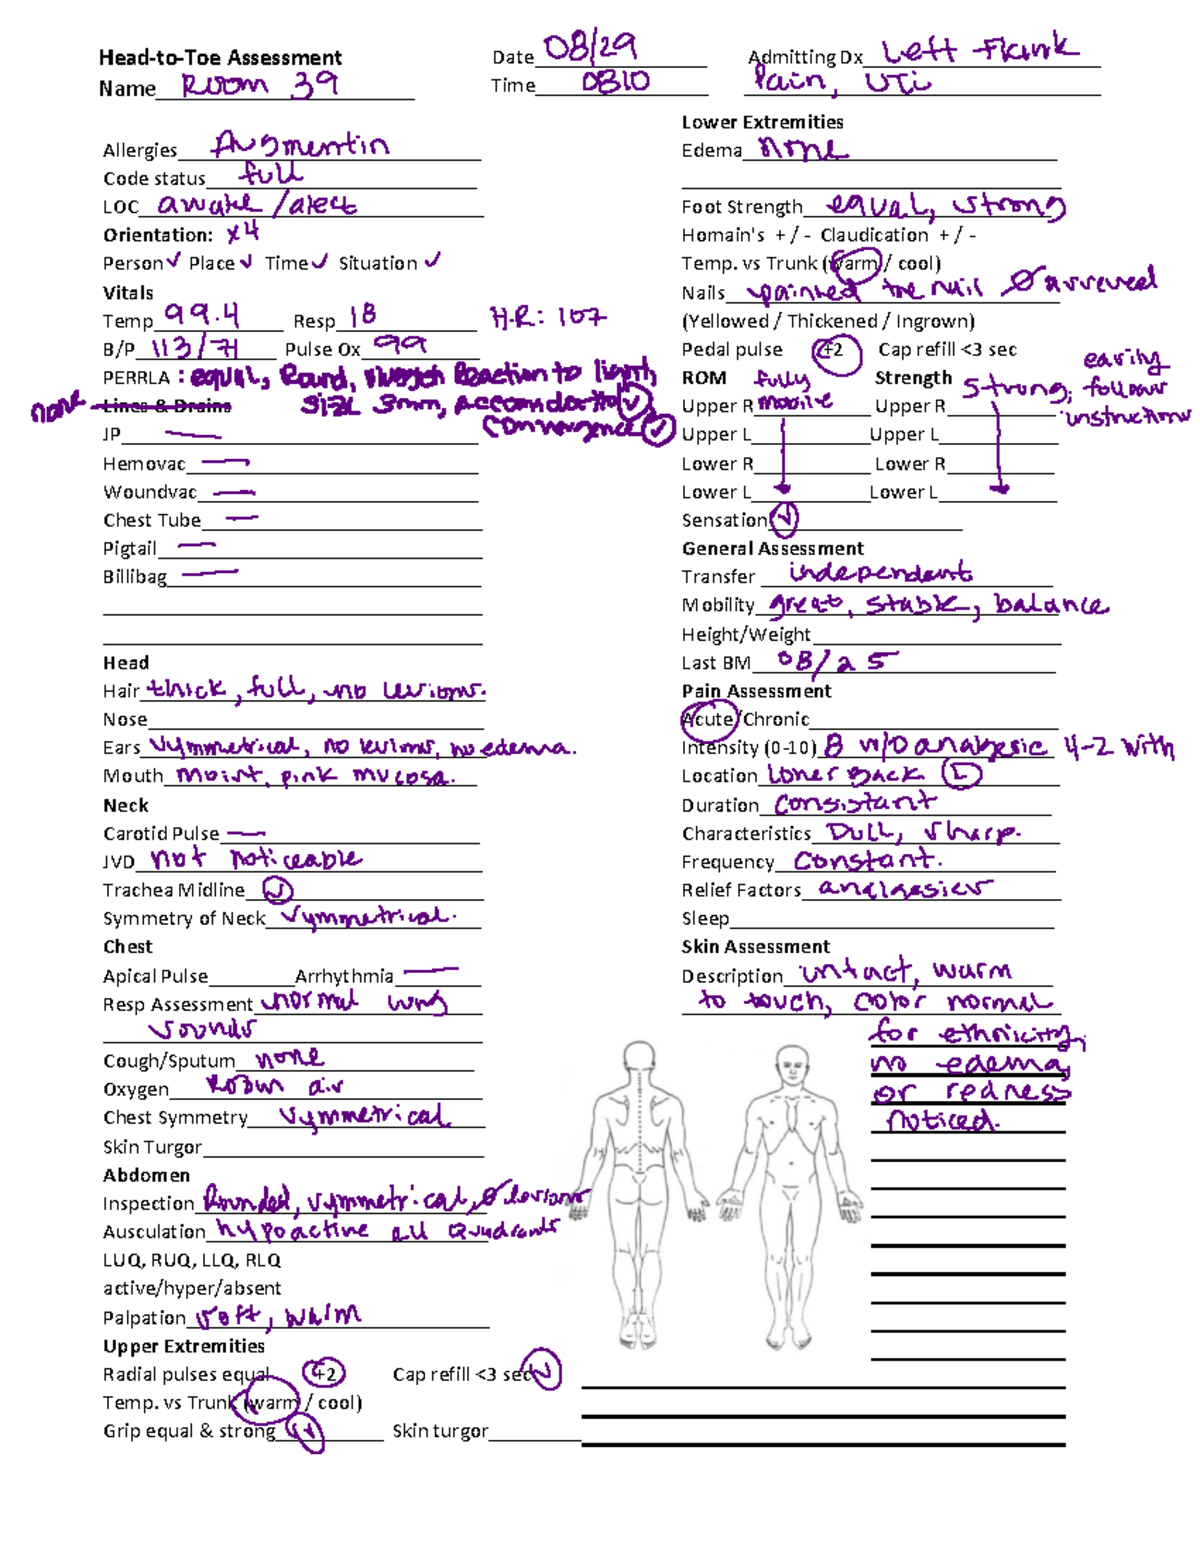 Head-to-Toe Assessment
Name Room 39
Date 08/29
Time 0810
Admitting Dx Left Flank
Pain, UTi
Allergies Augmentin
Code status full
LOC awake/alert
Orientation: x4
Person ✓ Place ✓ Time ✓ Situation ✓
Vitals
Temp 99.4 Resp 18 H.R: 107
B/P 113/71 Pulse Ox 99
PERRLA : equal, Round, Reaction to light,
size 3mm, Accomdation ✓
convergence ✓
none Lines & Drains
JP —
Hemovac —
Woundvac —
Chest Tube —
Pigtail —
Billibag —
Head
Hair thick, full, no lesions.
Nose
Ears symmetrical, no lesions, no edema.
Mouth moist, pink mucosa.
Neck
Carotid Pulse —
JVD not noticeable
Trachea Midline ✓
Symmetry of Neck symmetrical.
Chest
Apical Pulse Arrhythmia —
Resp Assessment normal lung
sounds
Cough/Sputum none
Oxygen Room air
Chest Symmetry symmetrical
Skin Turgor
Abdomen
Inspection Rounded, symmetrical, Ø lesions
Ausculation hypoactive all Quadrants
LUQ, RUQ, LLQ, RLQ
active/hyper/absent
Palpation soft, warm
Upper Extremities
Radial pulses equal +2 Cap refill <3 sec ✓
Temp. vs Trunk (warm / cool)
Grip equal & strong ✓ Skin turgor
Lower Extremities
Edema none
Foot Strength equal, strong
Homain's + / - Claudication + / -
Temp. vs Trunk (warm / cool)
Nails painted toe nail Ø
(Yellowed / Thickened / Ingrown)
Pedal pulse +2 Cap refill <3 sec
ROM fully Strength strong, easily follows instructions
Upper R mobile Upper R
Upper L Upper L
Lower R Lower R
Lower L Lower L
Sensation ✓
General Assessment
Transfer independent
Mobility great, stable, balance
Height/Weight
Last BM 08/25
Pain Assessment
Acute/Chronic
Intensity (0-10) 8 w/o analgesic 4-2 with
Location Lower Back L
Duration consistant
Characteristics Dull, sharp.
Frequency constant.
Relief Factors analgesics
Sleep
Skin Assessment
Description intact, warm
to touch, color normal
for ethnicity,
no edema,
or redness
noticed.